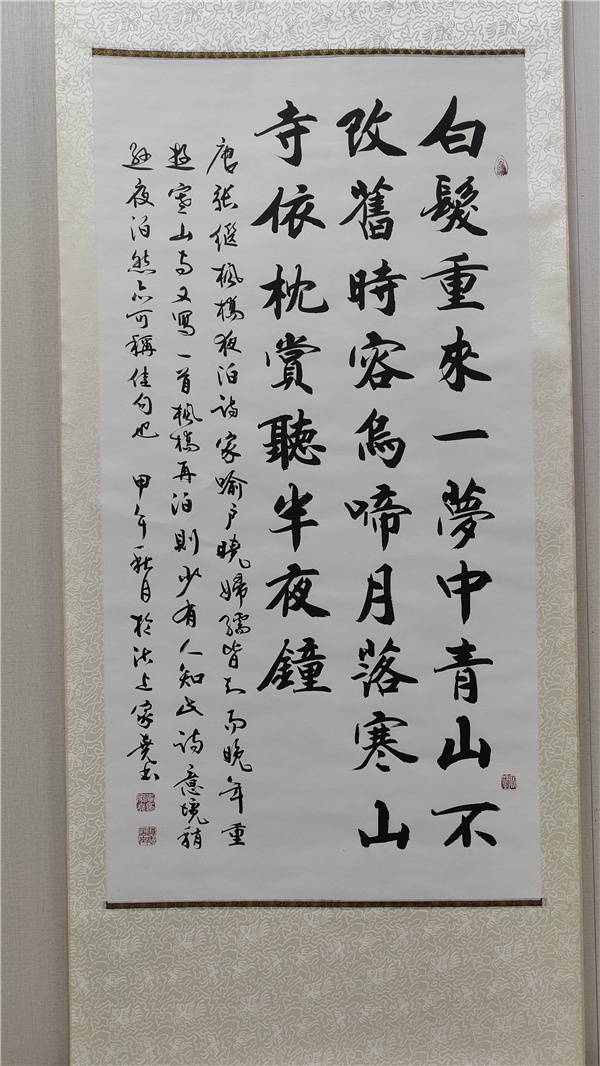 白髮重來一夢中青山不
改舊時容烏啼月落寒山
寺依枕賞聽半夜鐘
唐張繼楓橋夜泊詩家喻户曉婦孺皆知而晚年重
遊寒山寺又寫一首楓橋再泊則少有人知此詩意境稍
遜夜泊然亦可稱佳句也 甲午秋月於沽上家堯書